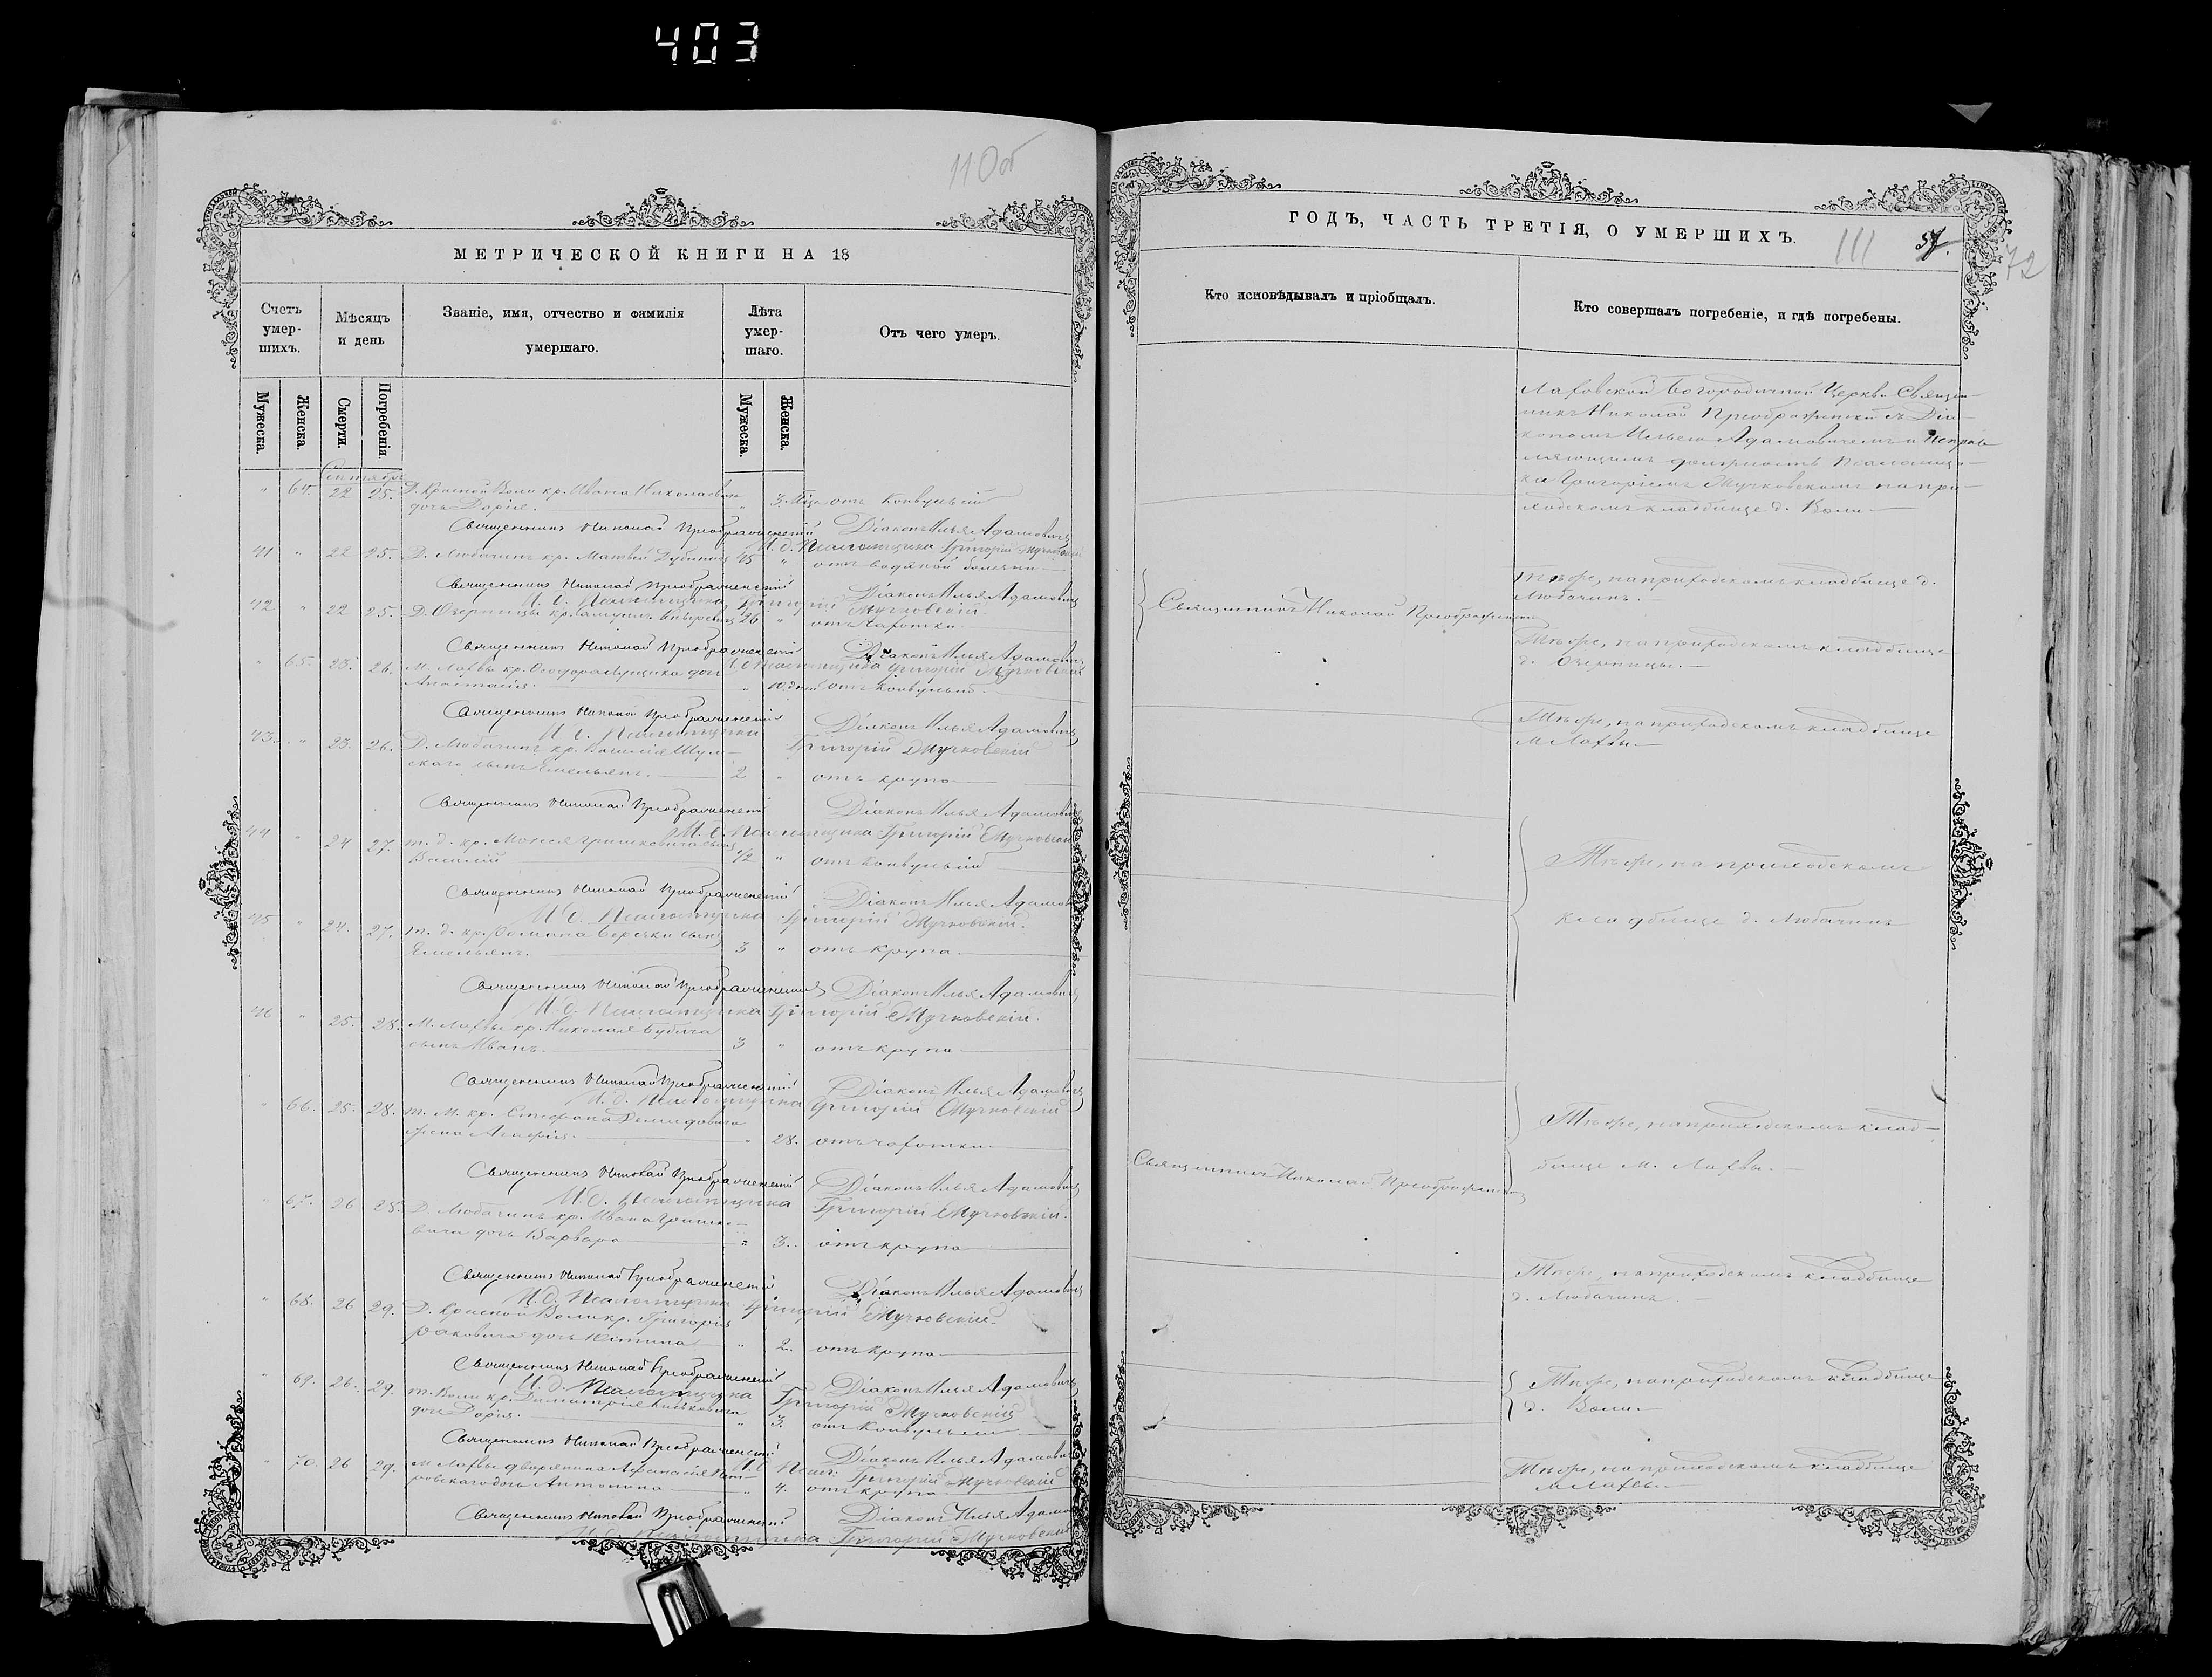 403
110об
МЕТРИЧЕСКОЙ КНИГИ НА 18
Счетъ умер-шихъ.
Мѣсяцъ и день
Званіе, имя, отчество и фамилія умершаго.
Лѣта умер-шаго.
Отъ чего умеръ.
Мужеска.
Женска.
Смерти.
Погребенія.
Мужеска.
Женска.
Сентябрь
" 64. 22 25. Д. Красной Воли кр. Ивана Николаевич " 3. Мца отъ конвульсій
дочь Дарія.
Священникъ Николай Преображенскій Діаконъ Илья Адамовичъ
И. д. Псаломщика Григорій Мучковскій
41 " 22 25. Д. Любачинъ кр. Матвей 45 " отъ водяной болезни
Священникъ Николай Преображенскій Діаконъ Илья Адамовичъ
И. д. Псаломщика Григорій Мучковскій.
42 " 22 25. Д. Озерницы кр. 26 " отъ чахотки.
Священникъ Николай Преображенскій Діаконъ Илья Адамовичъ
И. д. Псаломщика Григорій Мучковскій
" 65. 23. 26. М. Лахвы кр. Ѳеодора дочь
Анастасія. " 10. дней отъ конвульсій.
Священникъ Николай Преображенскій Діаконъ Илья Адамовичъ
И. д. Псаломщика Григорій Мучковскій
43. " 23. 26. Д. Любачинъ кр. Василія Шум-
скаго сынъ Емельянъ. 2 " отъ крупа
Священникъ Николай Преображенскій Діаконъ Илья Адамовичъ
И. д. Псаломщика Григорій Мучковскій
44 " 24 27. т. д. кр. Моисея Гришковича сынъ
Василій 1/2 " отъ конвульсій
Священникъ Николай Преображенскій Діаконъ Илья Адамов
И. д. Псаломщика Григорій Мучковскій.
45 " 24. 27. т. д. кр. Романа сынъ
Емельянъ. 3 " отъ крупа
Священникъ Николай Преображенскій Діаконъ Илья Адамовичъ
И. д. Псаломщика Григорій Мучковскій.
46 " 25. 28. М. Лахвы кр. Николая
сынъ Иванъ. 3 " отъ крупа
Священникъ Николай Преображенскій Діаконъ Илья Адамовичъ
И. д. Псаломщика Григорій Мучковскій
" 66. 25. 28. т. М. кр. Стефана Демидовича
жена Агафія. " 28. отъ чахотки.
Священникъ Николай Преображенскій Діаконъ Илья Адамовичъ
И. д. Псаломщика Григорій Мучковскій.
" 67. 26 28. Д. Любачинъ кр. Ивана Гришко-
вича дочь Варвара " 3. отъ крупа
Священникъ Николай Преображенскій Діаконъ Илья Адамовичъ
И. д. Псаломщика Григорій Мучковскій.
" 68. 26 29. Д. Красной Воли кр. Григорія
Раковича дочь Юстина " 2. отъ крупа
Священникъ Николай Преображенскій Діаконъ Илья Адамовичъ
И. д. Псаломщика Григорій Мучковскій
" 69. 26. 29. т. Воли кр. Димитрія
дочь Дарія. " 3. отъ конвульсій
Священникъ Николай Преображенскій Діаконъ Илья Адамовичъ
И. д. Псалом: Григорій Мучковскій
" 70. 26 29. М. Лахвы дворянина Аѳанасія
дочь Антонина " 4. отъ крупа
Священникъ Николай Преображенскій Діаконъ Илья Адамов
И. д. Псаломщика Григорій Мучковскій
ГОДЪ, ЧАСТЬ ТРЕТІЯ, О УМЕРШИХЪ.
111
72
Кто исповѣдывалъ и пріобщалъ.
Кто совершалъ погребеніе, и гдѣ погребены.
Лахвской Богородичной Церкви Священ-
никъ Николай Преображенскій съ Діа-
кономъ Ильею Адамовичемъ и исправ
ляющимъ должность Псаломщи-
ка Григоріемъ Мучковскимъ на при-
ходскомъ кладбище д. Воли
Священникъ Николай Преображенскій
Тѣже, на приходскомъ кладбище д.
Любачинъ.
Тѣже, на приходскомъ кладбище
д. Озерницы.
Тѣже, на приходскомъ кладбище
М. Лахвы.
Тѣже, на приходскомъ
кладбище д. Любачинъ
Тѣже, на приходскомъ клад-
бище М. Лахвы.
Священникъ Николай Преображенскій
Тѣже, на приходскомъ кладбище
д. Любачинъ.
Тѣже, на приходскомъ кладбище
д. Воли.
Тѣже, на приходскомъ кладбище
М. Лахвы